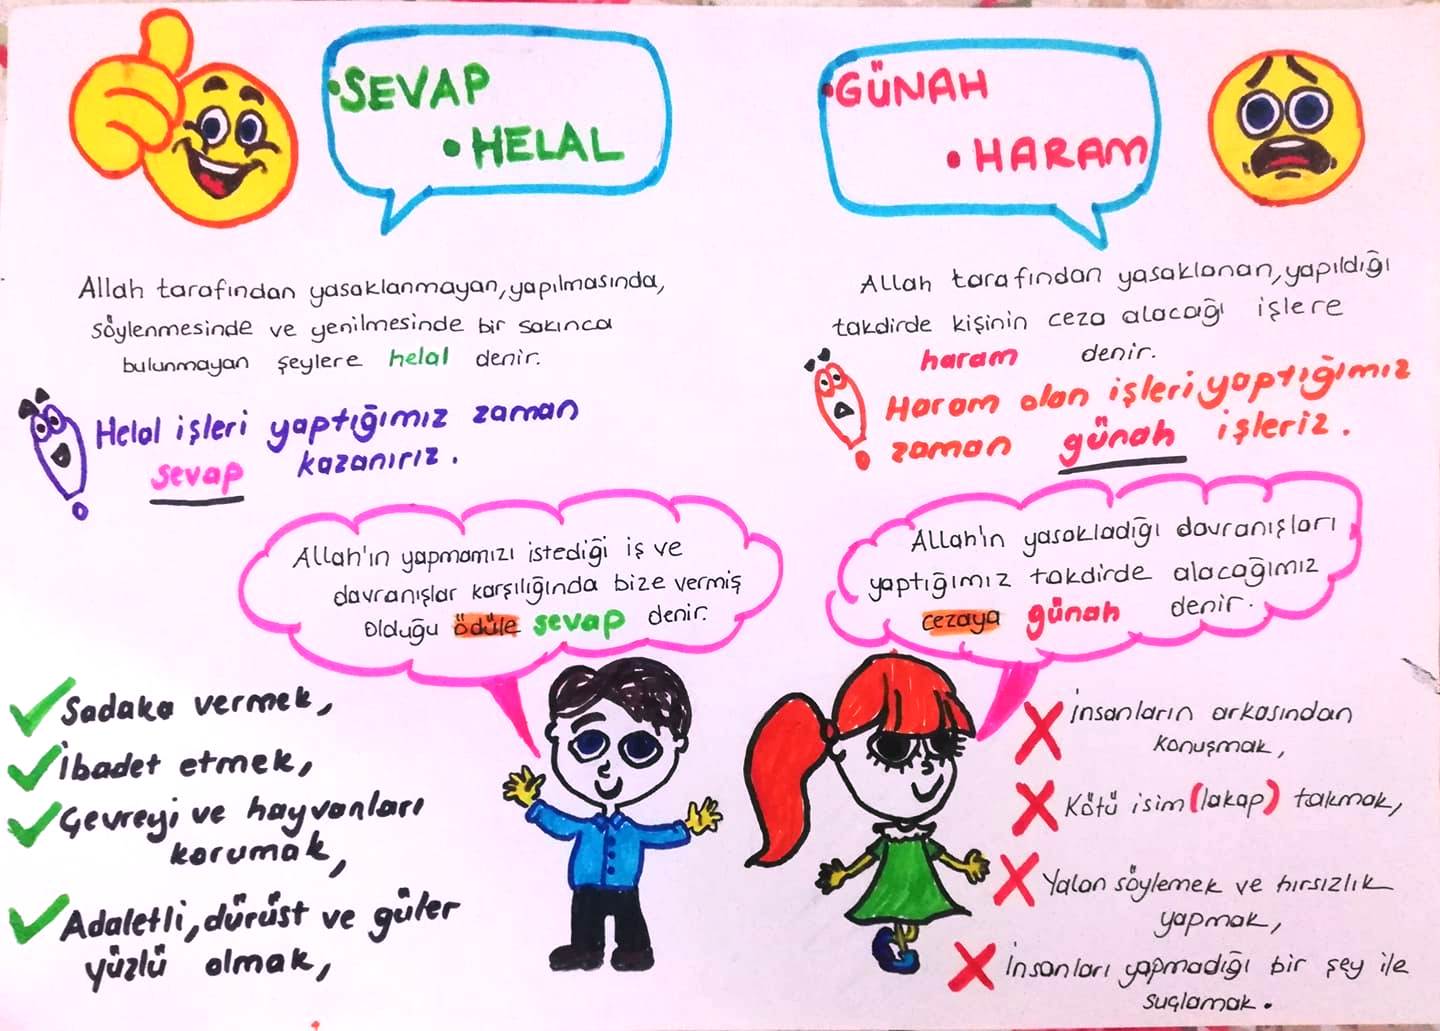 • SEVAP
• HELAL
Allah tarafından yasaklanmayan, yapılmasında,
söylenmesinde ve yenilmesinde bir sakınca
bulunmayan şeylere helal denir.
Helal işleri yaptığımız zaman
sevap kazanırız.
Allah'ın yapmamızı istediği iş ve
davranışlar karşılığında bize vermiş
olduğu ödüle sevap denir.
Sadaka vermek,
İbadet etmek,
Çevreyi ve hayvanları
korumak,
Adaletli, dürüst ve güler
yüzlü olmak,
• GÜNAH
• HARAM
Allah tarafından yasaklanan, yapıldığı
takdirde kişinin ceza alacağı işlere
haram denir.
Haram olan işleri yaptığımız
zaman günah işleriz.
Allah'ın yasakladığı davranışları
yaptığımız takdirde alacağımız
cezaya günah denir.
İnsanların arkasından
konuşmak,
Kötü isim (lakap) takmak,
Yalan söylemek ve hırsızlık
yapmak,
İnsanları yapmadığı bir şey ile
suçlamak.